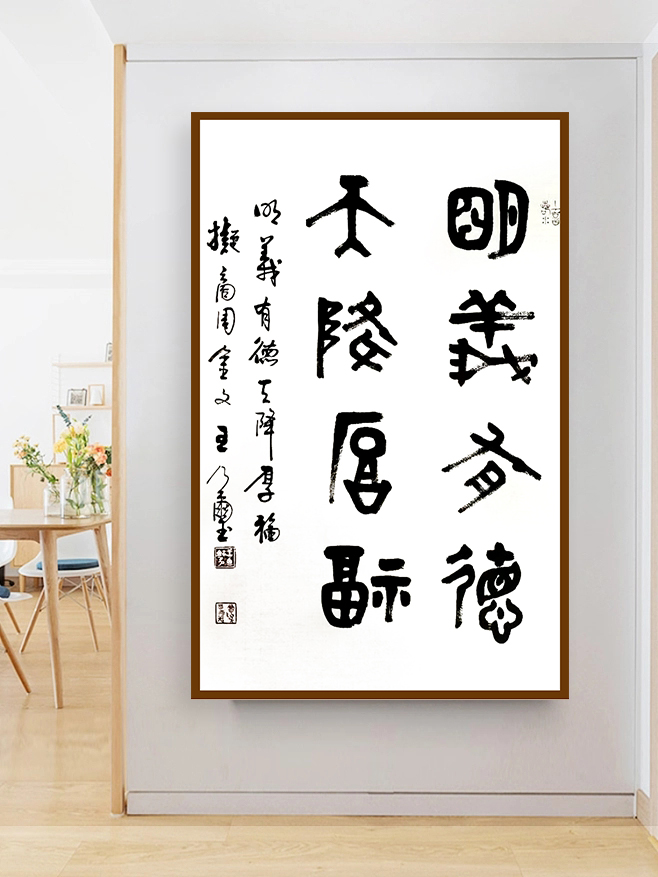 明義有德
天降厚福
明義有德天降厚福
擬商周金文王乃璽